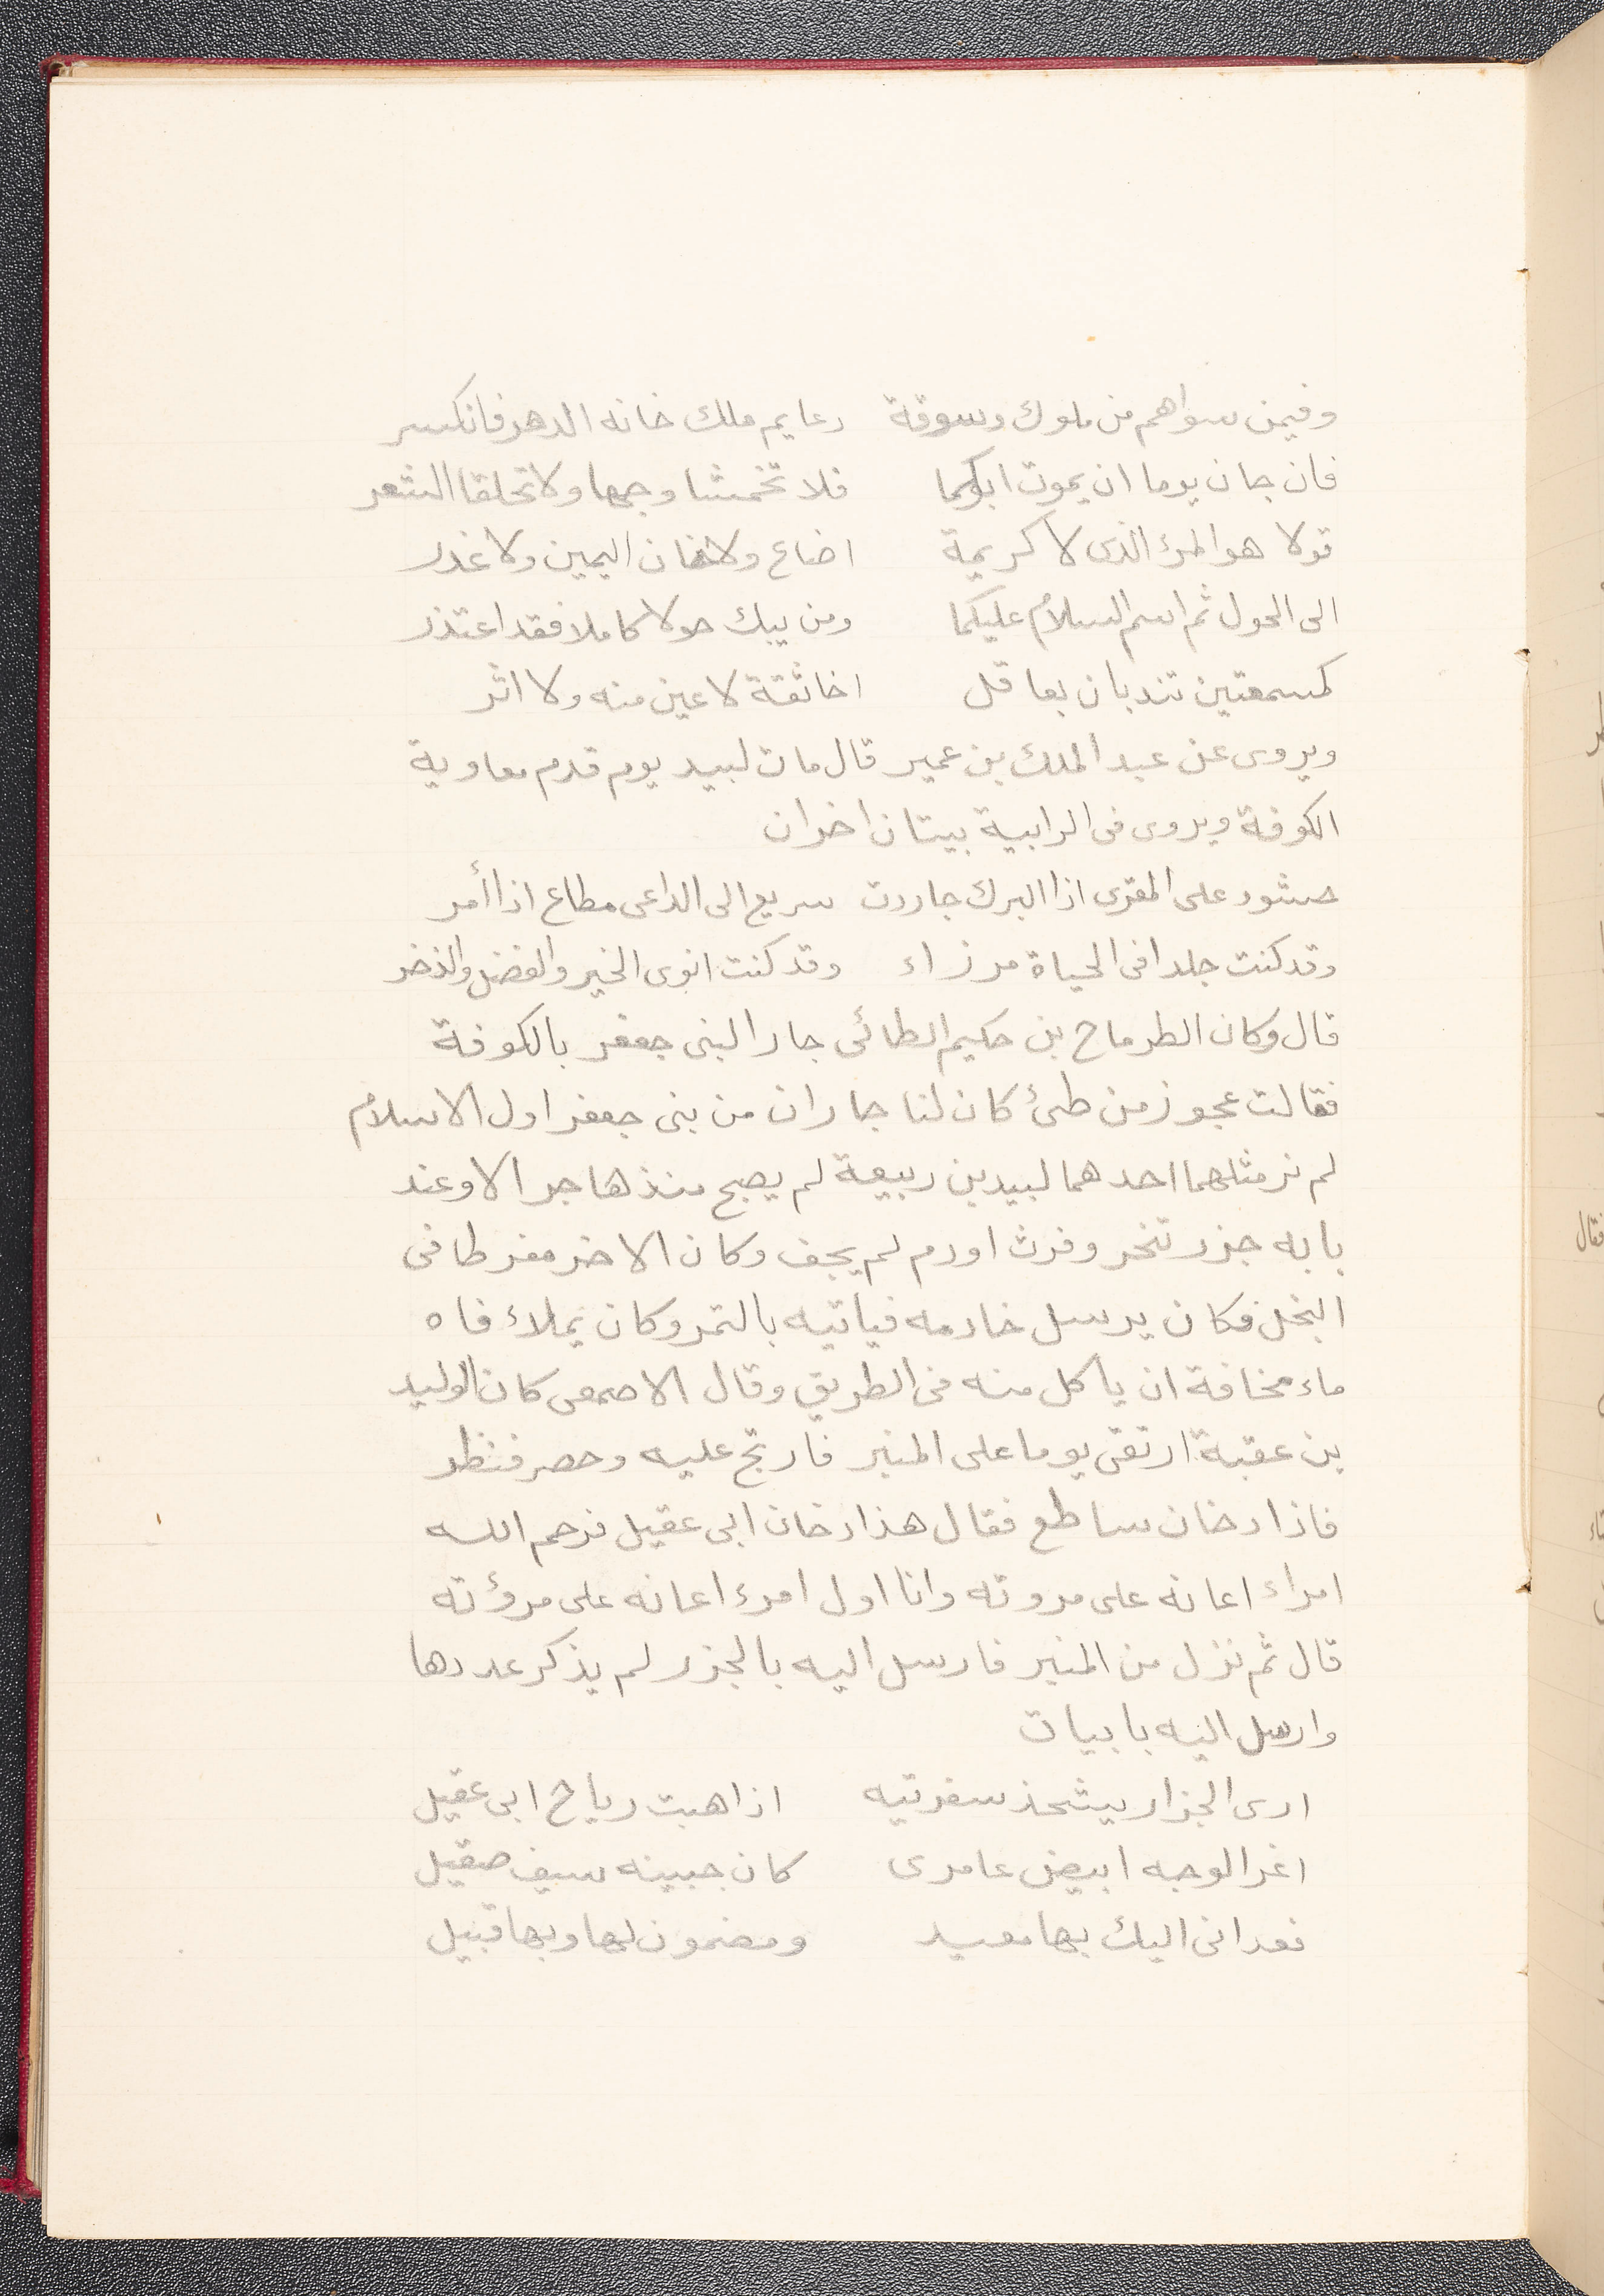 وفيمن سواهم من ملوك وسوقة دعايم ملك خانه الدهر فانكسر
فان حان يوما ان يموت ابوكما فلا تخمشا وجها ولا تحلقا الشعر
قولا هو المرء الذى لا كريمة اضاع ولا خان اليمين ولا غدر
الى الحول ثم اسم السلام عليكما ومن يبك حولا كاملا فقد اعتذر
كمسمعتين تندبان بعاقل اخا ثقة لا عين منه ولا اثر
ويروى عن عبد الملك بن عمير قال مات لبيد يوم قدم معاوية
الكوفة ويروى فى الرابية بيتان اخران
حشود على المقرى اذا البرك جاردت سريع الى الداعى مطاع اذا أمر
وقد كنت جلدا فى الحياة مرزاء وقد كنت انوى الخير والفضل والذخر
قال وكان الطرماح بن حكيم الطائى جارا لبنى جعفر بالكوفة
فقالت عجوز من طئ كان لنا جاران من بنى جعفر اول الاسلام
لم نر مثلهما احدهما لبيد بن ربيعة لم يصبح منذ هاجر الا وعند
بابه جزر تنحر وفرث اودم لم يجف وكان الاخر مفرطا فى
البخل فكان يرسل خادمه فياتيه بالتمر وكان يملاء فاه
ماء مخافة ان ياكل منه فى الطريق وقال الاصمعى كان الوليد
بن عقبة ارتقى يوما على المنبر فارتج عليه وحصر فنظر
فاذا دخان ساطع فقال هذا دخان ابى عقيل فرحم الله
امراء اعانه على مروته وانا اول امرء اعانه على مروٴته
قال ثم نزل من المنبر فارسل اليه بالجزر لم يذكر عددها
وارسل اليه بابيات
ارى الجزار يشحذ سفرتيه اذا هبت رياح ابى عقيل
اغر الوجه ابيض عامرى كان جبينه سيف صقيل
فعدانى اليك بها معيد ومضمون لها وبها قبيل
فقال